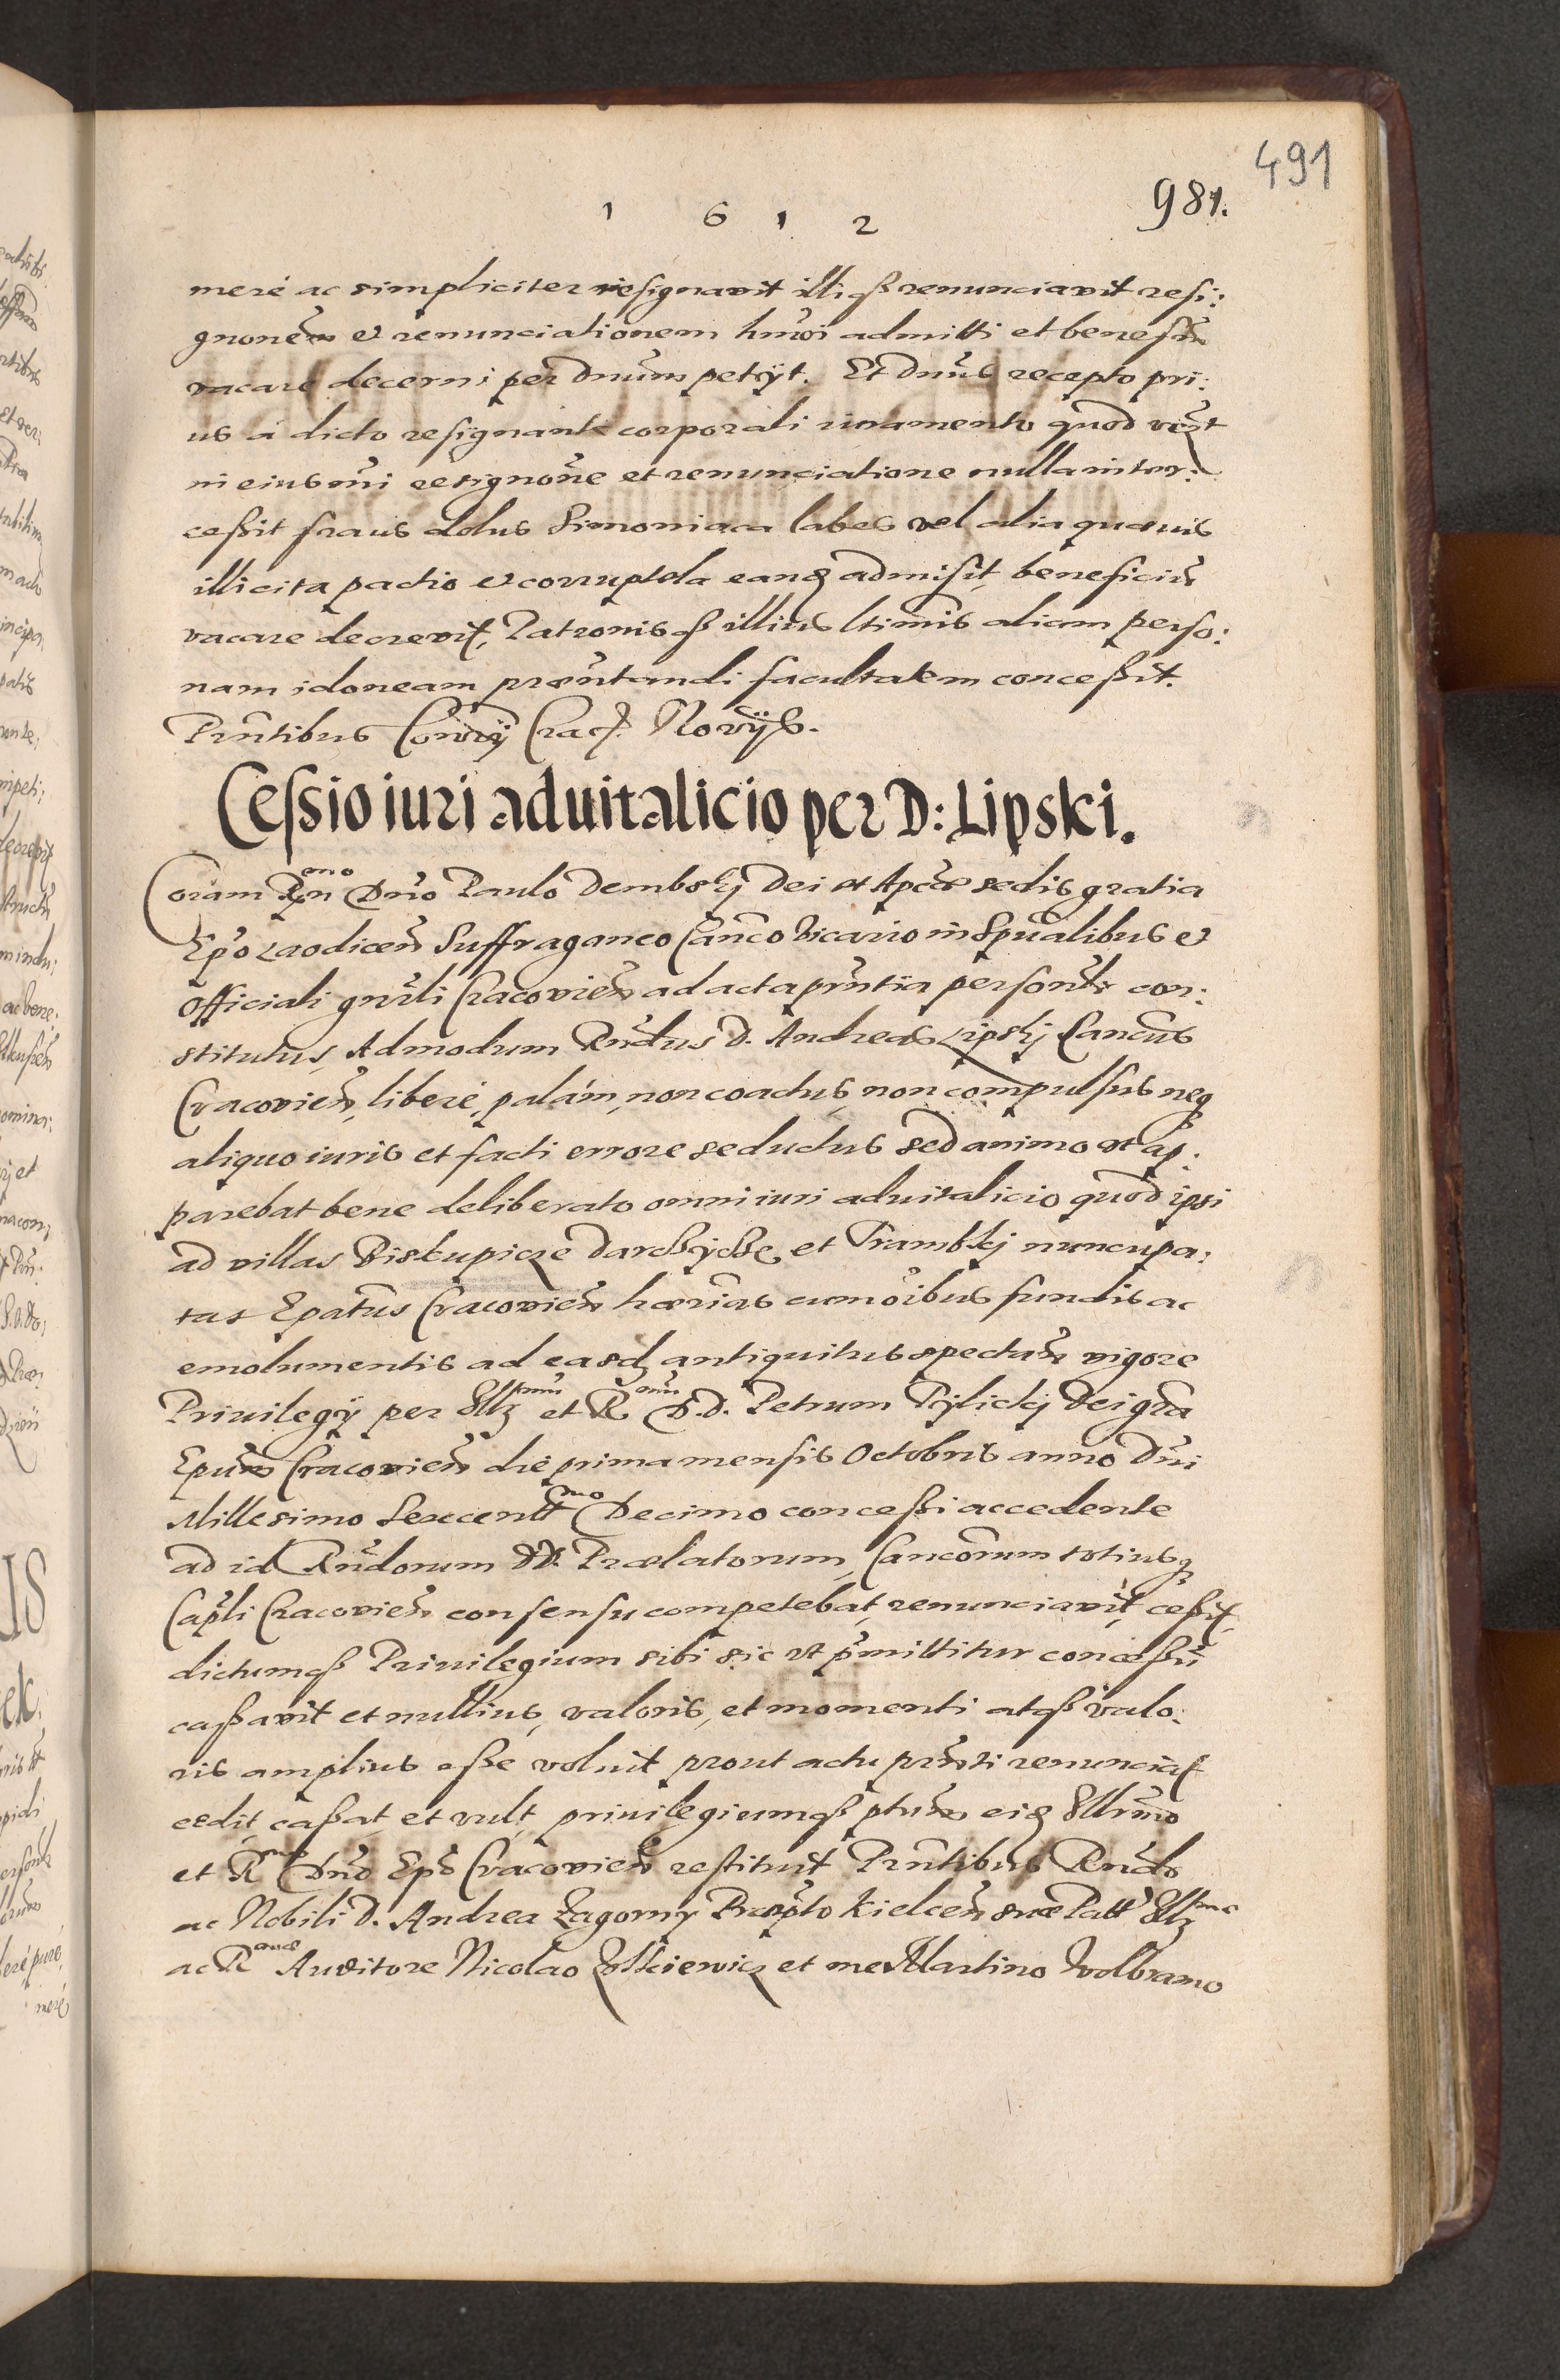 491
981.
1 6 1 2
meré ac simpliciter resignavit illiqß renunciavit resi:
gnonem et renunciationem hmoi admitti et beneficiū
vacare decerni per Dnum petijt. Et Dnus recepto pri:
us á dicto resignante corporali iuramento quod
in eiusmōi resignone et renunciatione nulla inter:
ceßit fraus dolus Simoniaca labes vel alia quævis
illicita pactio et corruptela eanq admisit, beneficiū
vacare decrevit, Patronis qß illius ltimis aliam perso:
nam idoneam præntandi facultatem conceßit.
Prntibus Conradj Crac.
Cessio iuri aduitalicio per D: Lipski.
Coram Rn mo Dno Paulo Dembskj Dei et Apcæ sedis gratia
Epo Laodicen Suffraganeo Canco Vicario in Spualibus et
Officiali gnrli Cracovien ad acta prntia personlr con:
stitutus, Admodum Rndus D. Andreas Lipskj Cancus
Cracovien, liberé, palám, non coactus, non compulsus neq
aliquo iuris et facti errore seductus sed animo vt ap:
parebat bene deliberato omni iuri aduitalicio quod ipsi
ad villas Biskupicze et nuncupa:
tas Epatus Cracovien hærias cum oibus fundis ac
emolumentis ad easdq antiquitus spectan vigore
Priuilegÿ per Illq mum et R mum D.D. Petrum Tÿlickj Dei gra
Epum Cracovien die prima mensis Octobris anno Dni
Millesimo Sexcentt mo Decimo conceßi accedente
ad id Rndorum DD. Prælatorum, Canconum totiusq
Capli Cracovien consensu competebat, renunciavit, ceßit,
dictumqß Priuilegium sibi sic vt præmittitur conceßū
caßavit et nullius, valoris, et momenti atqß valo:
ris amplius eße voluit prout actu prnti renunciat
cedit, caßat et vult, priuilegiumqß ptum eiq Illrmo
et R mo Dno Epo Cracovien restituit Prntibus Rndo
ac Nobili D. Andrea Zagorny Præpto Kielcen suæ Patt Illq mæ
ac R mæ Auditore Nicolao et me Martino Wolbramo